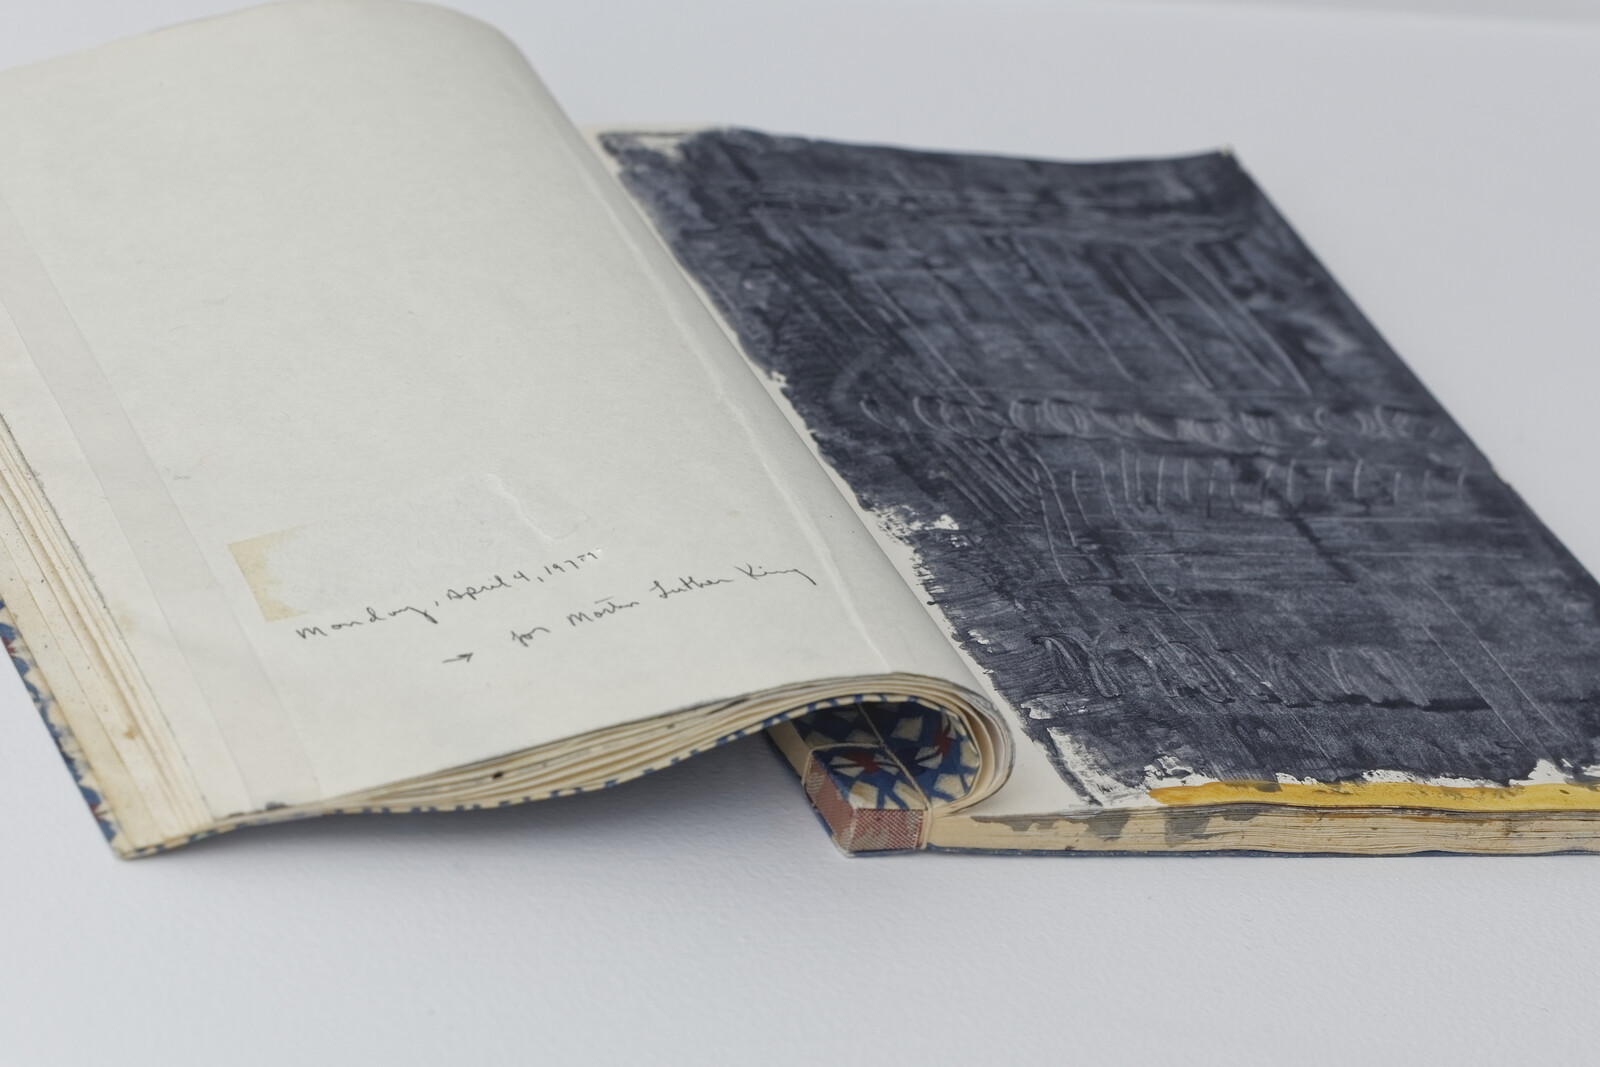 Monday, April 4, 1977
→ for Martin Luther King